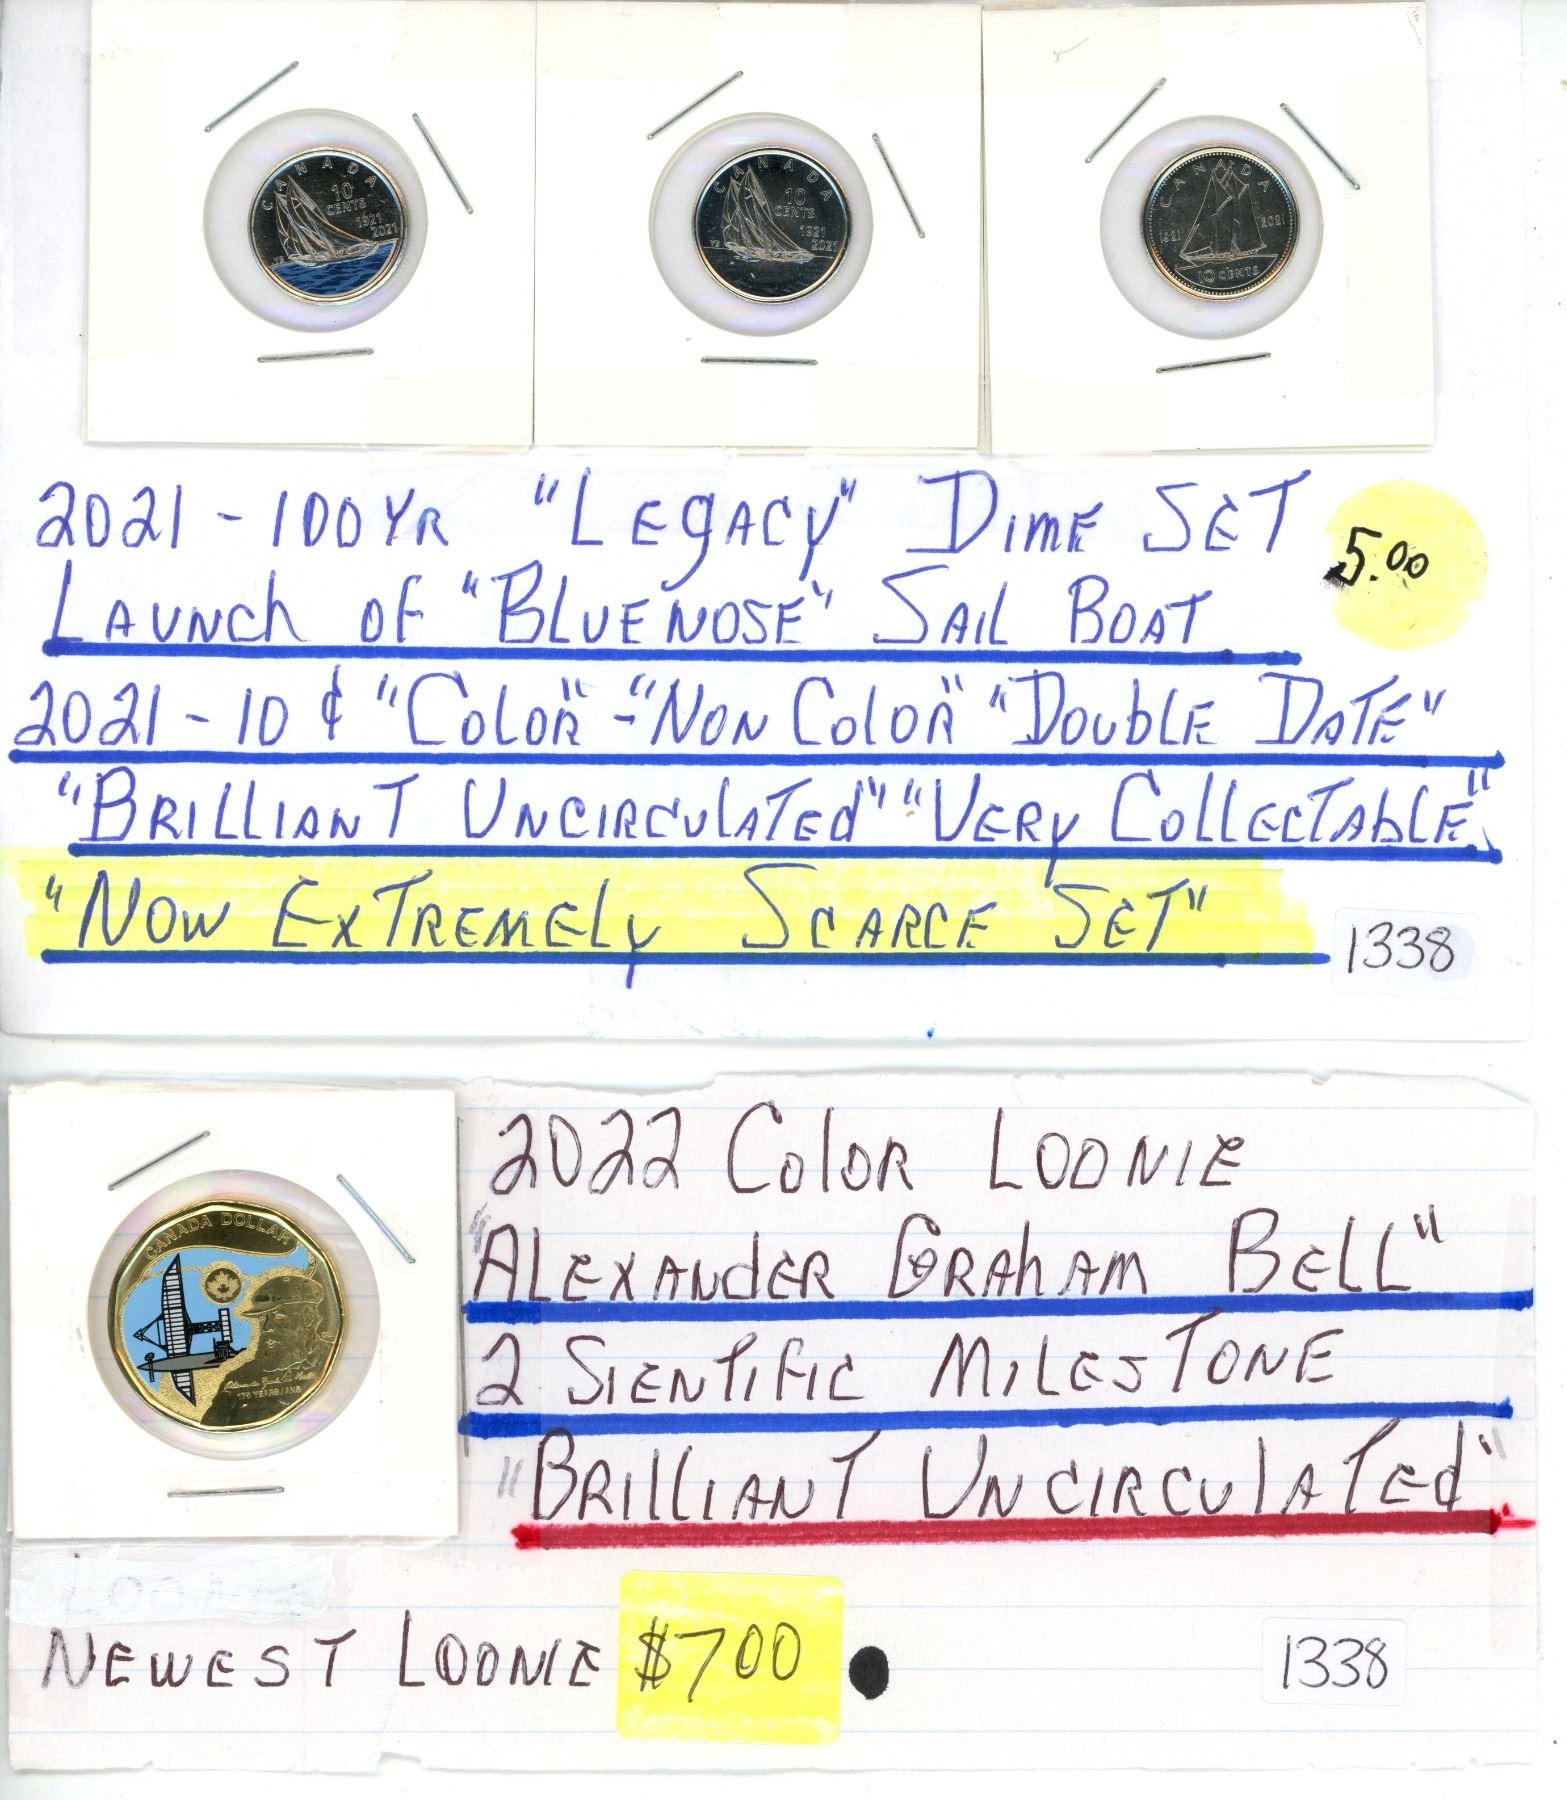 CANADA
10
CENTS
1921
2021
YB
CANADA
10
CENTS
1921
2021
YB
CANADA
1921
2021
10 CENTS
2021 - 100 YR "LEGACY" DIME SET
LAUNCH OF "BLUENOSE" SAIL BOAT
5.00
2021 - 10 ¢ "COLOR" - "NON COLOR" "DOUBLE DATE"
"BRILLIANT UNCIRCULATED" "VERY COLLECTABLE"
"NOW EXTREMELY SCARCE SET"
1338
CANADA DOLLAR
175 YEARS / ANS
2022 COLOR LOONIE
"ALEXANDER GRAHAM BELL"
2 SIENTIFIC MILESTONE
"BRILLIANT UNCIRCULATED"
NEWEST LOONIE $7.00
1338